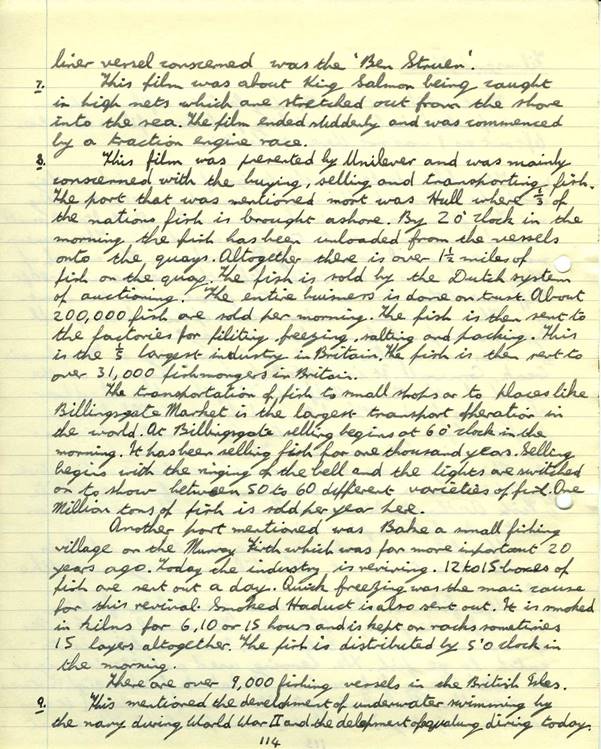 liner vessel conscerned was the 'Ben Struen'.
7. This film was about King Salmon being caught
in high nets which are stretched out from the shore
into the sea. The film ended suddenly and was commenced
by a traction engine race.
8. This film was presented by Unilever and was mainly
conscerned with the buying, selling and transporting fish.
The port that was mentioned most was Hull where 1/3 of
the nations fish is brought ashore. By 2 O'clock in the
morning the fish has been unloaded from the vessels
onto the quays. Altogether there is over 1½ miles of
fish on the quay. The fish is sold by the Dutch system
of auctioning. The entire buisness is done on trust. About
200,000 fish are sold per morning. The fish is then sent to
the factories for filiting, freezing, salting and packing. This
is the largest industry in Britain. The fish is then sent to
over 31,000 fishmongers in Britain.
The transportation of fish to small shops or to places like
Billingsgate Market is the largest transport operation in
the world. At Billingsgate selling begins at 6 O'clock in the
morning. It has been selling fish for one thousand years. Selling
begins with the ringing of the bell and the lights are switched
on to show between 50 to 60 different varieties of fish. One
Million tons of fish is sold per year here.
Another port mentioned was a small fishing
village on the Murray Firth which was far more important 20
years ago. Today the industry is reviving. 12 to 15 boxes of
fish are sent out a day. Quick freezing was the main cause
for this revival. Smoked Haduct is also sent out. It is smoked
in kilns for 6, 10 or 15 hours and is kept on racks sometimes
15 layers altogether. The fish is distributed by 5'O clock in
the morning.
There are over 9,000 fishing vessels in the British Isles.
9. This mentioned the development of underwater swimming by
the navy during World War II and the diving today.
114